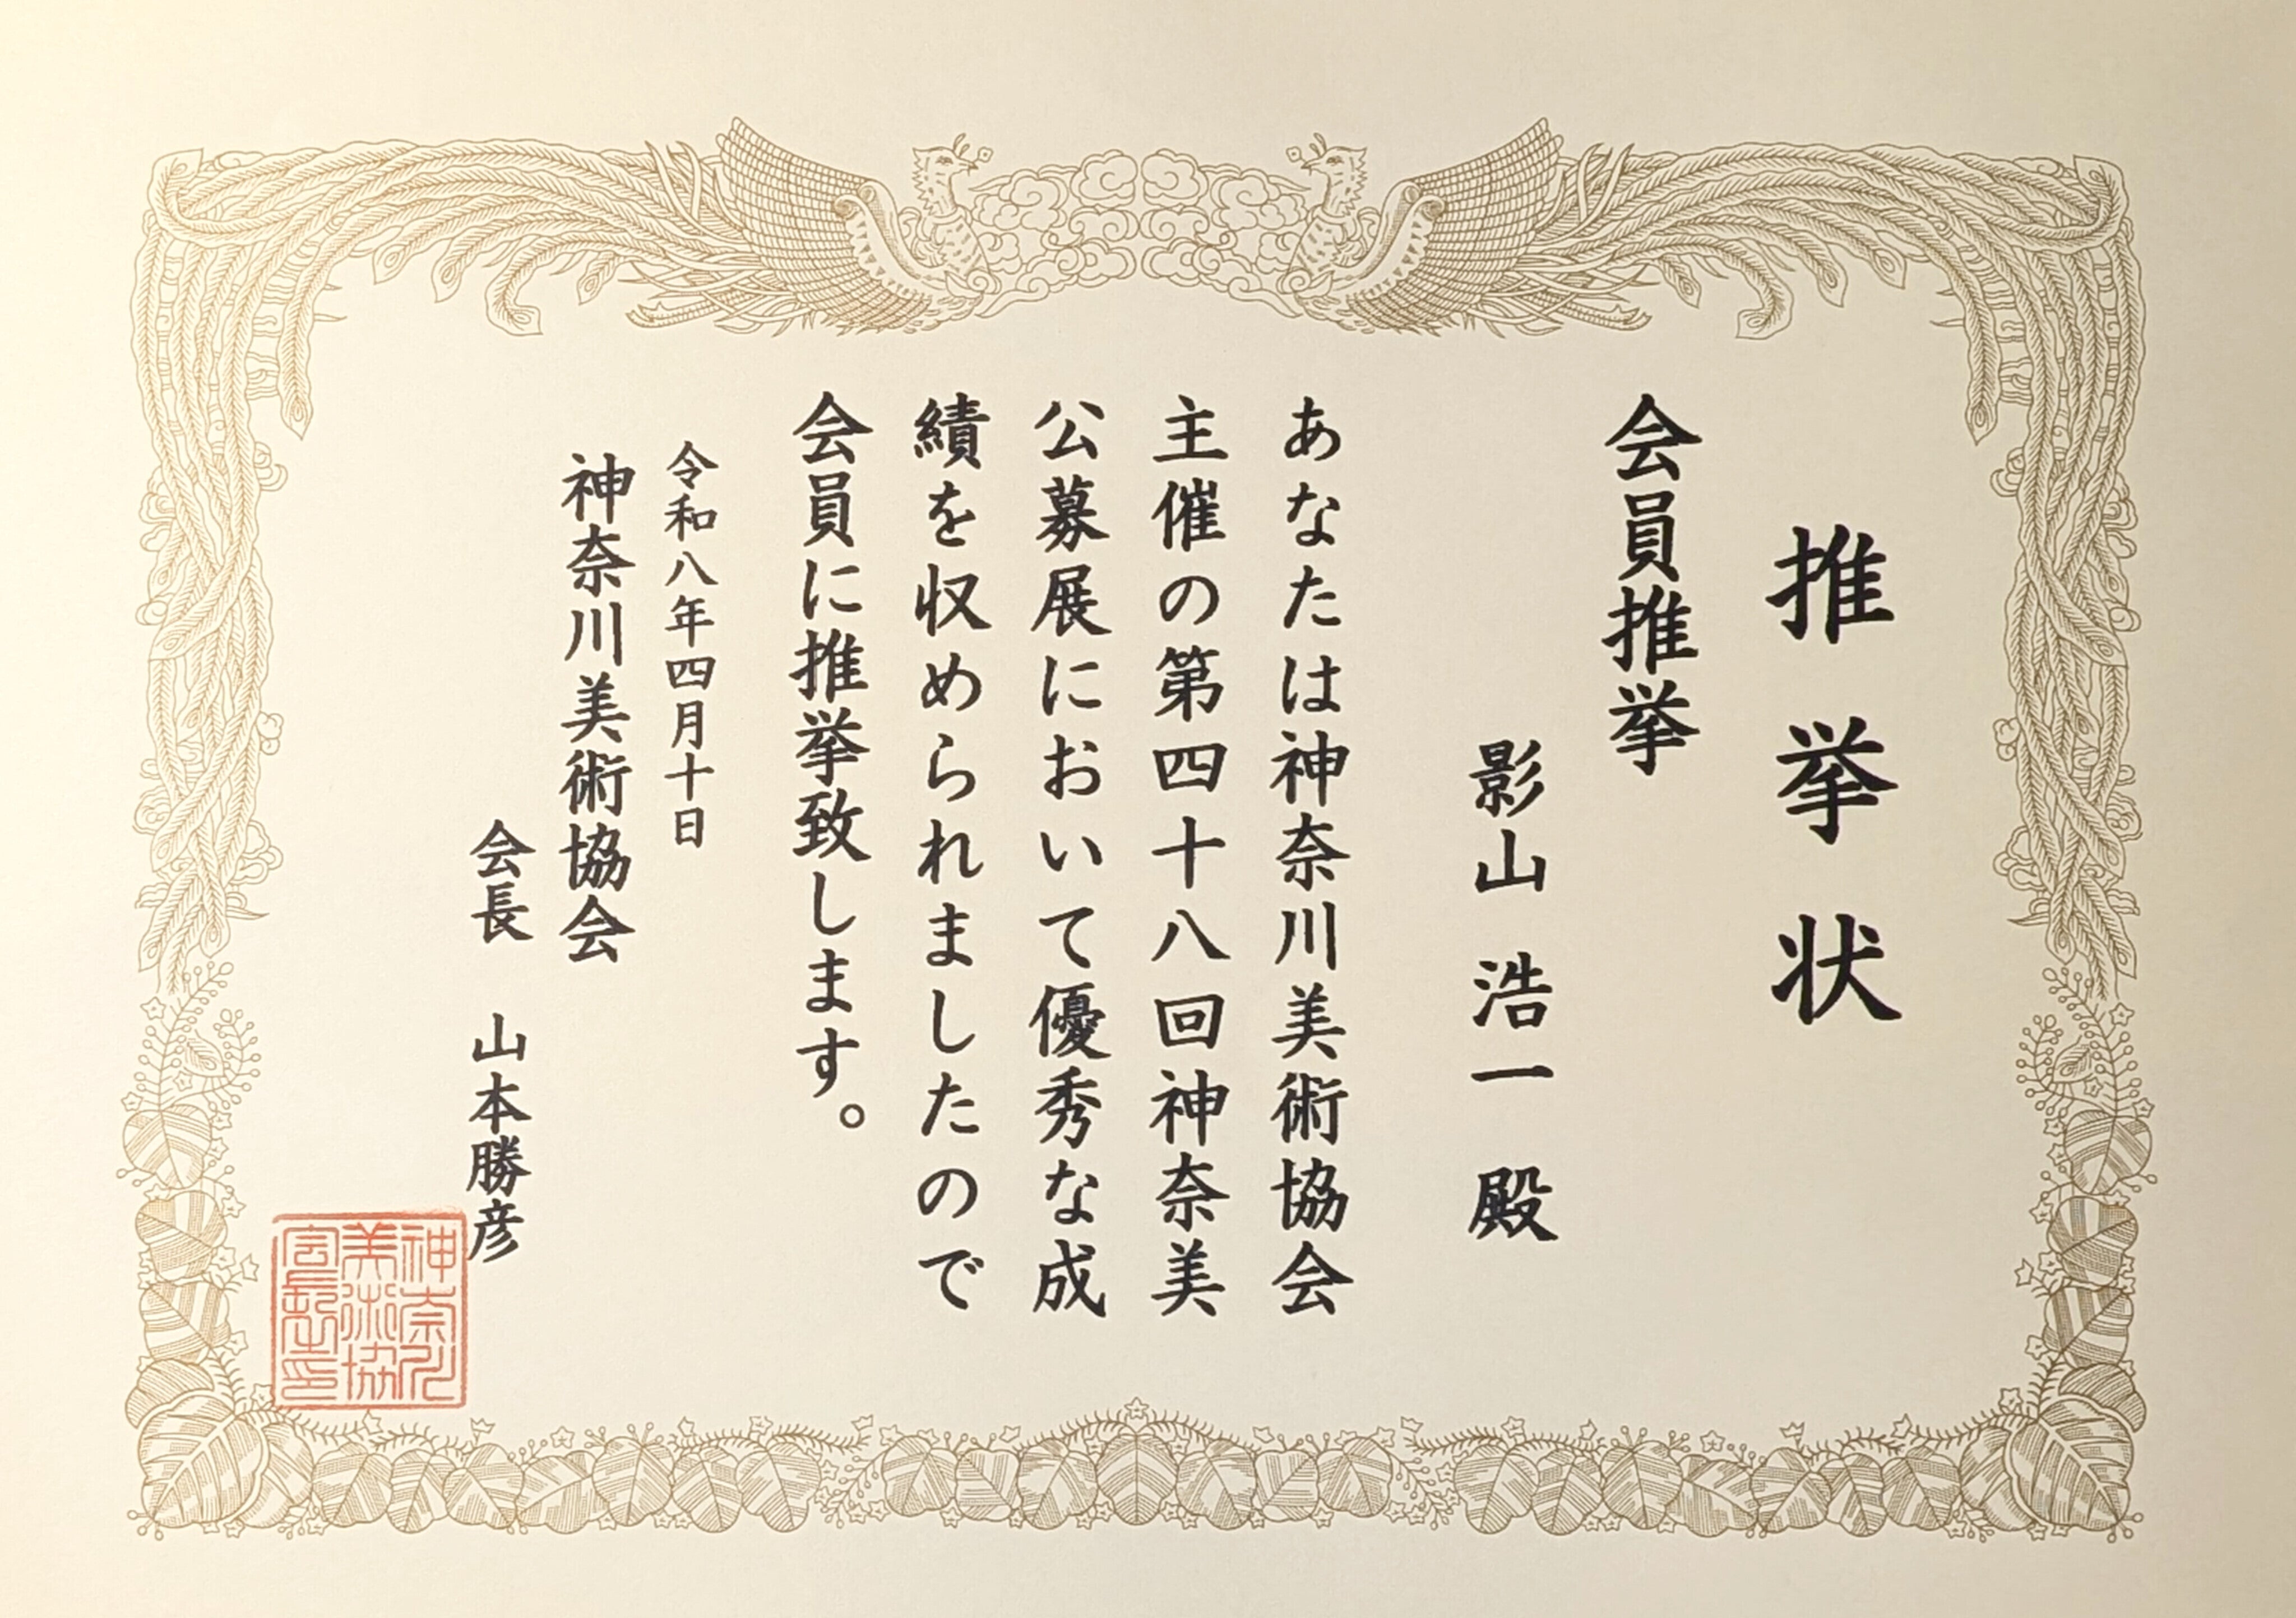 推挙状
会員推挙
影山 浩一 殿
あなたは神奈川美術協会
主催の第四十八回神奈美
公募展において優秀な成
績を収められましたので
会員に推挙致します。
令和八年四月十日
神奈川美術協会
会長 山本勝彦
神奈川
美術協
会長之印